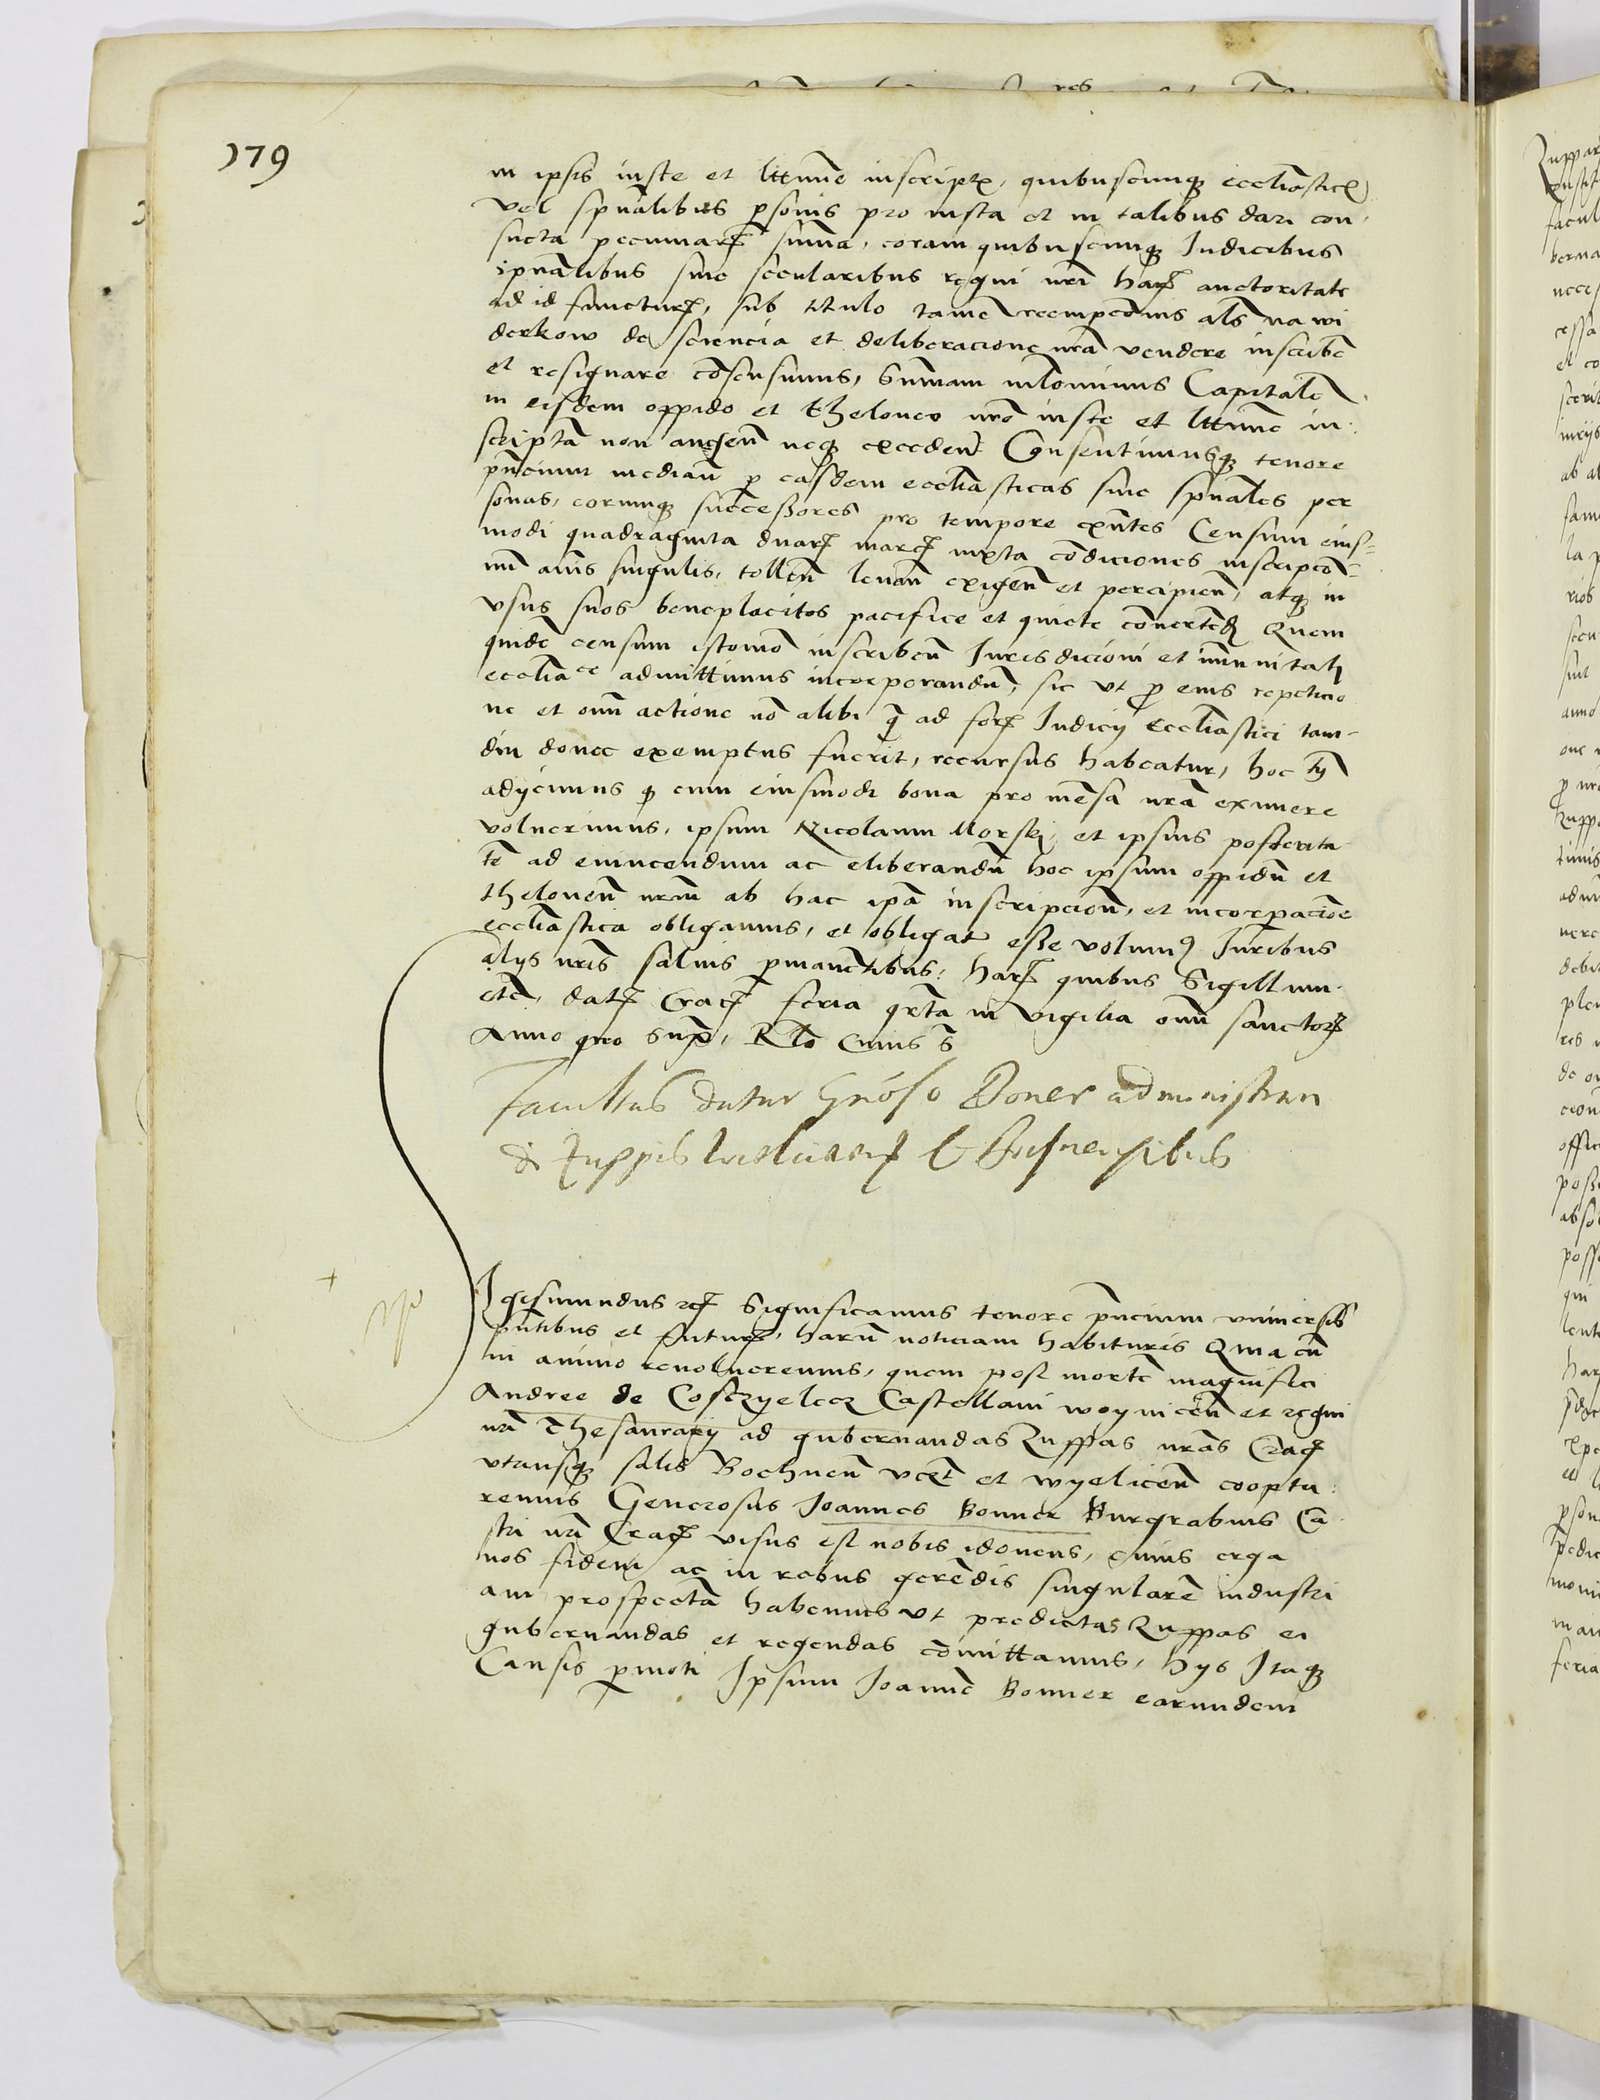 179
in ipsis iuste et l̄ttīme inscriptꝭ, quibuscunqꝫ eccl̄iasticꝭ
vel sp̄ualibus ꝑsonis pro iusta et in talibus dari con-
sueta pecuniarꝝ sum̄a, coram quibuscunqꝫ Iudicibus
sp̄ualibus siue secularibus regni nr̄i harꝝ auctoritate
ad id functurꝭ, sub titulo tamē reempcōnis al̄s na wi
derkow de sciencia et deliberacione nr̄a vendere inscribē
et resignare cōsensimus, Sum̄am nīlominus Capitalē
in eisdem oppido et theloneo nrō iuste et l̄ttīme in-
scriptā non augen̄ neqꝫ exceden̄ Consentimusqꝫ tenore
pn̄cium median̄ ꝑ easdem eccl̄iasticas siue sp̄uales per
sonas, eorumqꝫ successores pro tempore exn̄tes Censum eius-
modi quadraginta duarꝝ marcꝝ iuxta cōdiciones inscripcō-
num an̄is singulis, tollen̄ leuan̄ exigen̄ et percipien̄, atqꝫ in
vsus suos beneplacitos pacifice et quiete cōuertēd Quem
quidē censum istomō inscriben̄ Iurisdicioni et im̄unitati
eccl̄iace admittimus incorporandū, sic vt ꝓ eius repeticio
ne et om̄i actione nō alibi qͣ ad forꝝ Iudicij Eccl̄iastici tam-
diu donec exemptus fuerit, recursus habeatur, hoc tn̄
adijcimus ꝙ cum eiusmodi bona pro mēsa nr̄a eximere
voluerimus, ipsum Nicolaum Morski, et ipsius posterita-
tē ad euincendum ac eliberandū hoc ipsum oppidū et
theloneū nrūm ab hac ip̄a inscripcion̄, et incorpacioe
eccl̄iastica obligamus, et obligatū esse volumꝰ Iuribus
alijs nr̄is saluis ꝑmanētibus: harꝝ quibus Sigillum
etc̄, datꝝ Cracꝭ feria qr̄ta in vigilia om̄i sanctorꝝ
Anno quo supͣ, Rlō Cuius s̄
Facultas datur Gn̄oso Boner administran
di Zuppis &amp; Bochnensibus
Igismundus rex̄ Significamus tenore pn̄cium vniuersis
pn̄tibus et futurꝭ, harū noticiam habituris Quia cū
in animo reuolueremus, quem post mortē magnifici
Andree de Cosczyelecz Castellani woynicen̄ et regni
nr̄i Thesaurarij ad gubernandas Zuppas nr̄as Cracꝭ
vtrasqꝫ salis Bochnen̄ vcꝫ et wyelicen̄ coopta-
remus Generosus Ioannes Bonner Burgrabius Ca-
stri nr̄i Cracꝭ visus est nobis idoneus, cuius erga
nos fidem ac in rebus gerēdis singularē industri
am prospectā habemus vt predictas Zuppas ei
gubernandas et regendas cōmittamus, hijs Itaqꝫ
Causis ꝑmoti Ipsum Ioannē Bonner earundem